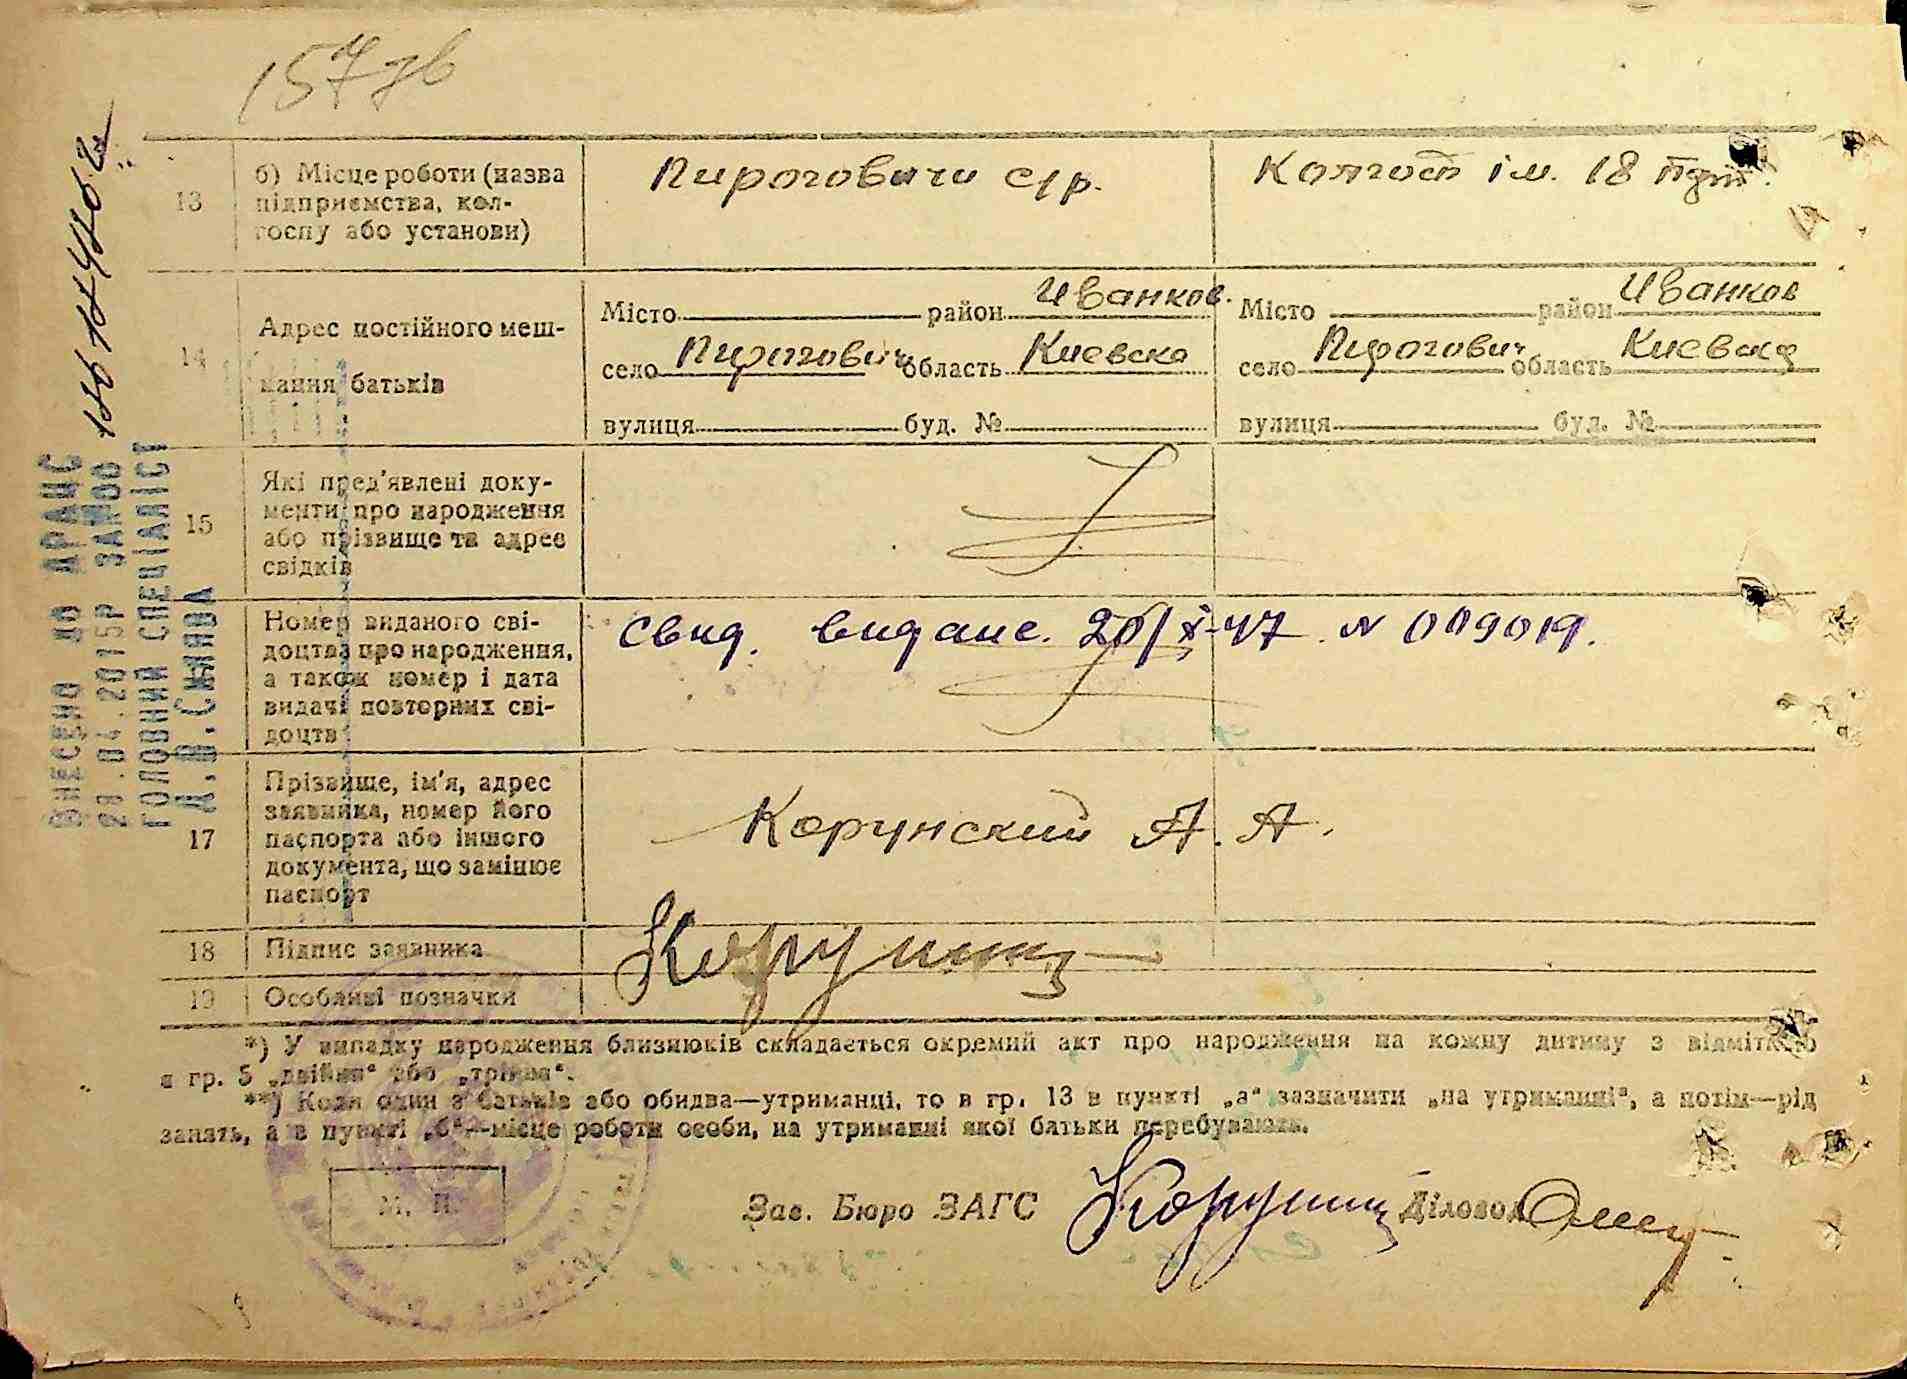 157 зв
13
б) Місце роботи (назва
підприємства, кол-
госпу або установи)
Пироговичи с/р.
Колгосп ім. 18 парт.
14
Адрес постійного меш-
кання батьків
Місто район Иванков.
село Пирогович область Киевска
вулиця буд. №
Місто район Иванков
село Пирогович область Киевска
вулиця буд. №
15
Які пред'явлені доку-
менти про народження
або прізвище та адрес
свідків
Номер виданого сві-
доцтва про народження,
а також номер і дата
видачі повторних сві-
доцтв
Свид. видане. 20/X-47 N 009019.
17
Прізвище, ім'я, адрес
заявника, номер його
паспорта або іншого
документа, що замінює
паспорт
Корунский А. А.
18
Підпис заявника
19
Особливі позначки
*) У випадку народження близнюків складається окремий акт про народження на кожну дитину з відміткою
в гр. 5 „двійня" або „трійня".
**) Коли один з батьків або обидва—утриманці, то в гр. 13 в пункті „а" зазначити „на утриманні", а потім—рід
занять, а в пункті „б"—місце роботи особи, на утриманні якої батьки перебувають.
М. П.
Зав. Бюро ЗАГС
Діловод
Внесено до ДРАЦС
29.04.2015Р ЗА №00
ГОЛОВНИЙ СПЕЦІАЛІСТ